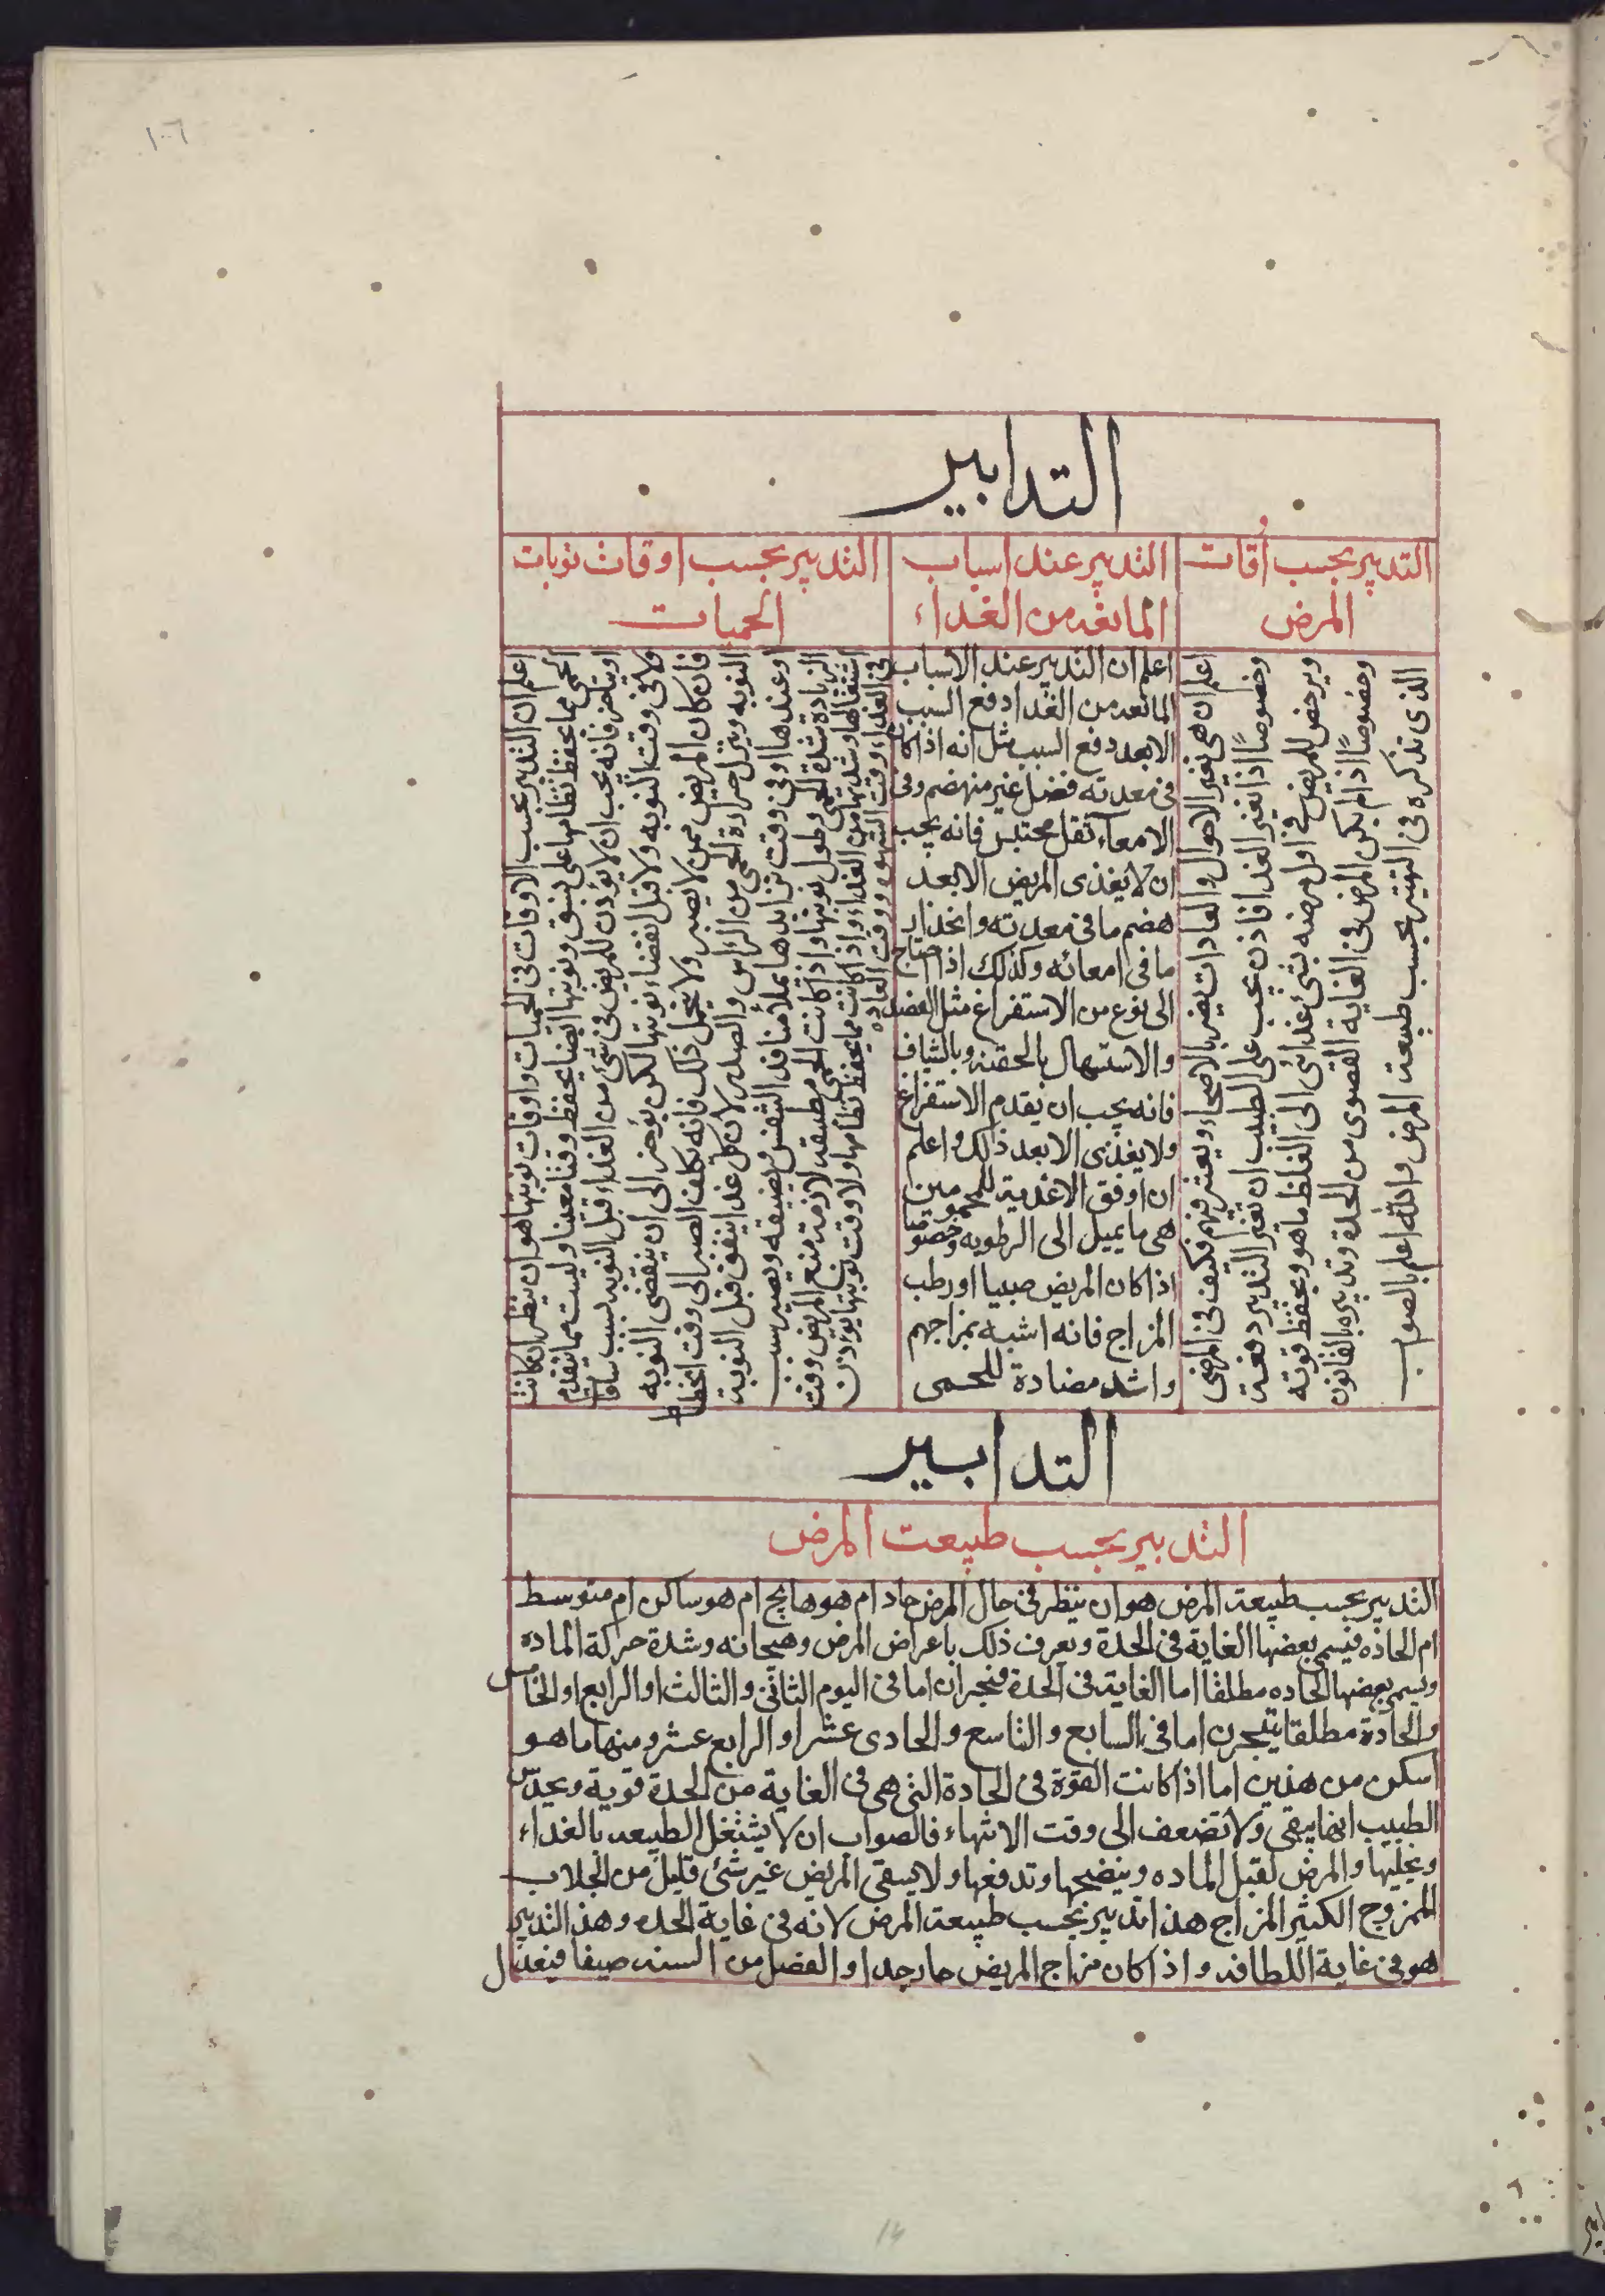 ١٠٦
التدابير
التدبير بحسب أوقات
المرض
اعلم ان هى تغير الاحوال والعادات يضر بالاصحاء ويعتبر فيهم فكيف فى المرضى
وخصوصًا اذا تغير الغدا فاذن يجب على الطبيب ان تغير التدبير دفعة
ويرخص للمريض فى اول مرضه بشئ غدائى الى الغلظ ما هو ويحفظ قوته
وخصوصًا اذا لم يكن المرض فى الغاية القصوى من الحدة وتدبيره بالقانون
الذى نذكره فى التدبير بحسب طبيعت المرض والله اعلم بالصواب
التدبير عند اسباب
المانعه من الغداء
اعلم ان التدبير عند الاسباب
المانعه من الغدا دفع السبب
الابعد دفع السبب مثل انه اذا كان
فى معدته فضل غير منهضم وفى
الامعاء ثقل محتبس فانه يجب
ان لا يغذى المريض الا بعد
هضم ما فى معدته وانحذار
ما فى امعائه وكذلك اذا احتاج
الى نوع من الاستفراغ مثل الفصد
والاستسهال بالحقنه وبالشياف
فانه يجب ان يقدم الاستفراغ
ولا يغذى الا بعد ذلك واعلم
ان اوفق الاغذية للمحمومين
هى ما يميل الى الرطوبه وخصوصًا
اذا كان المريض صبيا او رطب
المزاج فانه اشبه بمزاجهم
واشد مضادة للحمى
التدبير بحسب اوقات نوبات
الحميات
اعلم ان التدبير بحسب الاوقات فى الحميات واوقات نوبتها هو ان ينظر ان كانت
الحمى مما يحفظ نظامها على نسق ونوبتها ايضا يحفظ وقتا معينا وليست مما يتقدم
او يتاخر فانه يجب ان لا يؤذن للمريض فى شئ من الغداء قبل النوبه بست ساعات
ولا فى وقت النوبه ولا قبل انقضاء نوبتها لكن يؤخر الى ان ينقضى النوبه
فان كان المريض ممن لا يصبر ولا يحمل ذلك فانه يكلف الصبر الى وقت انحطاط
النوبه ونزل حرارة الحمى من الراس والصدر لان كل غدا ينفق قبل النوبة
وعندها او فى وقت تزايدها يملا منافذ التنفس ويضيقه ويصير سبب
الزيادة شدة الحمى وطول نوبتها واذا كانت الحمى مطبقه لازمة منع المريض وقت
اشتعالها وشدتها من الغداء واذا كانت مما يحفظ نظامها ولا وقت نوبتها يؤذن
فى الغداء وقت الشهوه ووقت العاده
التدابير
التدبير بحسب طبيعت المرض
التدبير بحسب طبيعة المرض هو ان ينظر فى حال المرض حاد ام هو هايج ام هو ساكن ام متوسط
ام الحاده فيسمى بعضها الغاية فى الحدة ويعرف ذلك باعراض المرض وهيجانه وشدة حركة الماده
ويسمى بعضها الحاده مطلقا اما الغاية فى الحدة فبحران اما فى اليوم الثانى والثالث او الرابع او الخامس
والحادة مطلقا يتبحرن اما فى السابع والتاسع والحادى عشر او الرابع عشر ومنها ما هو
اسكن من هذين اما اذا كانت القوة فى الحادة التى هى فى الغاية من الحدة قوية ويحدس
الطبيب انها يبقى ولا تضعف الى وقت الانتهاء فالصواب ان لا يشتغل الطبيعه بالغداء
ويخليها والمرض لقبل الماده وينضجها وتدفعها ولا يسقى المريض غير شئ قليل من الجلاب
الممزوج الكثير المزاج هذا تدبير بحسب طبيعة المرض لانه فى غاية الحده وهذا التدبير
هو فى غاية اللطافه واذا كان مزاج المريض حار جدا والفصل من السنه صيفا فيعذل
14